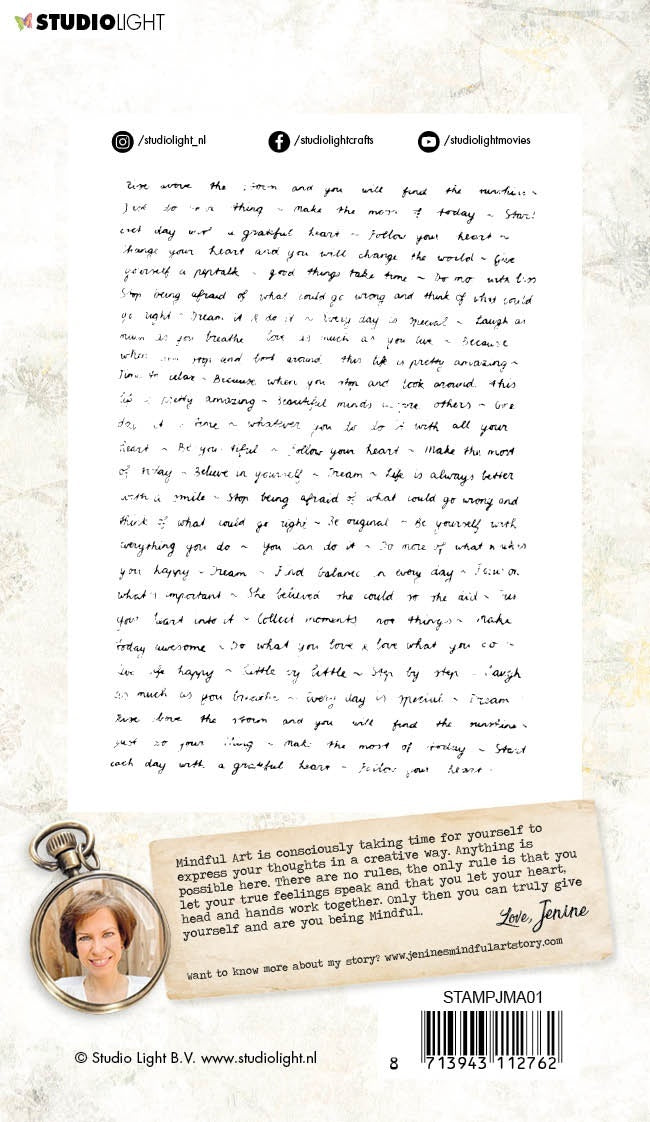 STUDIOLIGHT
/studiolight_nl /studiolightcrafts /studiolightmovies
Rise above the storm and you will find the sunshine ~
Just do your thing ~ Make the most of today ~ Start
each day with a grateful heart ~ Follow your heart ~
Change your heart and you will change the world ~ Give
yourself a peptalk ~ good things take time ~ Do mo with
Stop being afraid of what could go wrong and think of what could
go right ~ Dream it & do it ~ Every day is special ~ Laugh as
much as you breathe love as much as you live ~ Because
when you stop and look around this life is pretty amazing ~
Time to relax ~ Because when you stop and look around this
life is pretty amazing ~ Beautiful minds inspire others ~ One
day at a time ~ whatever you do do it with all your
heart ~ Be you tiful ~ Follow your heart ~ Make the most
of today ~ Believe in yourself ~ Dream ~ Life is always better
with a smile ~ Stop being afraid of what could go wrong and
think of what could go right ~ Be original ~ Be yourself with
everything you do ~ You can do it ~ Do more of what makes
you happy ~ Dream ~ Find balance in every day ~ Focus on
what's important ~ She believed she could so she did ~ Put
your heart into it ~ Collect moments not things ~ Make
today awesome ~ Do what you love & love what you do ~
Live life happy ~ Little by little ~ Step by step ~ Laugh
as much as you breathe ~ Every day is special ~ Dream
Rise bove the storm and you will find the sunshine ~
just do your thing ~ make the most of today ~ Start
each day with a grateful heart ~ Follow your heart ~
Mindful Art is consciously taking time for yourself to
express your thoughts in a creative way. Anything is
possible here. There are no rules, the only rule is that you
let your true feelings speak and that you let your heart,
head and hands work together. Only then you can truly give
yourself and are you being Mindful.
Love, Jenine
Want to know more about my story? www.jeninesmindfulartstory.com
STAMPJMA01
© Studio Light B.V. www.studiolight.nl
8 713943 112762